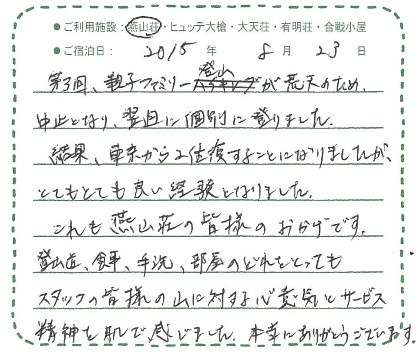 ●ご利用施設：燕山荘・ヒュッテ大槍・大天荘・有明荘・合戦小屋
●ご宿泊日： 2015 年 8 月 23 日
第3回、親子ファミリー登山が荒天のため、
中止となり、翌週に個別に登りました。
結果、東京から2往復することになりましたが、
とてもとても良い経験となりました。
これも燕山荘の皆様のおかげです。
登山道、食事、手洗、部屋のどれをとっても
スタッフの皆様の山に対する心意気とサービス
精神を肌で感じました。本当にありがとうございます